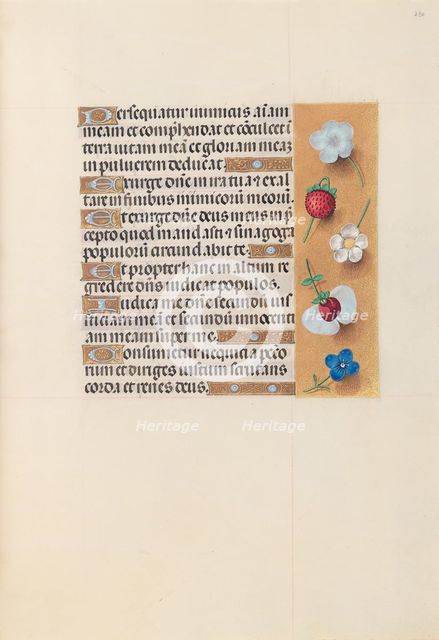 230
Persequatur inimicus aīam
meam et comp̄hendat et cōculcet ī
terra vitam meā et gloriam meaȝ
in pulverem deducat.
Exurge dn̄e in ira tua et exal
tare in finibus inimicorū meorū.
Et exurge dn̄e deus meus in p̄
cepto quod mandasti et sinagoga
populorū circundabit te.
Et propter hanc in altum re
gredere dn̄s iudicat populos.
Iudica me dn̄e secundū ius
ticiam meā et secundū innocenti
am meam super me.
Consumetur nequicia pctō
rum et diriges iustum scrutans
corda et renes deus.
Heritage Heritage Heritage
Heritage Heritage